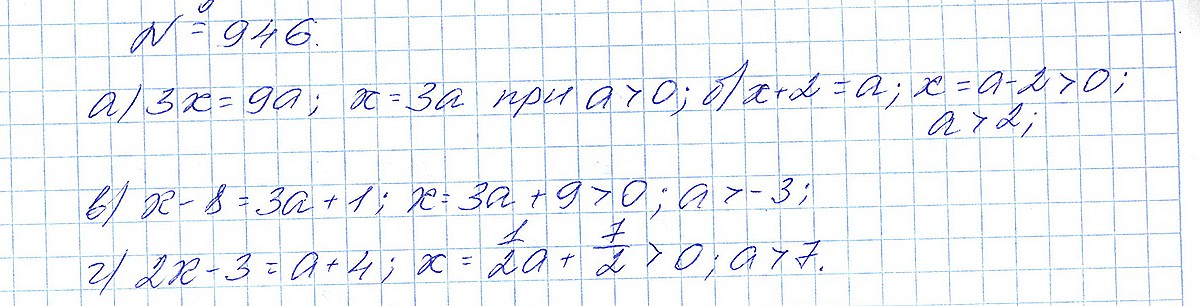 № 946.
а) 3x = 9a; x = 3a при a > 0; б) x + 2 = a; x = a - 2 > 0;
a > 2;
в) x - 8 = 3a + 1; x = 3a + 9 > 0; a > -3;
г) 2x - 3 = a + 4; x = 1/2 a + 7/2 > 0; a > 7.